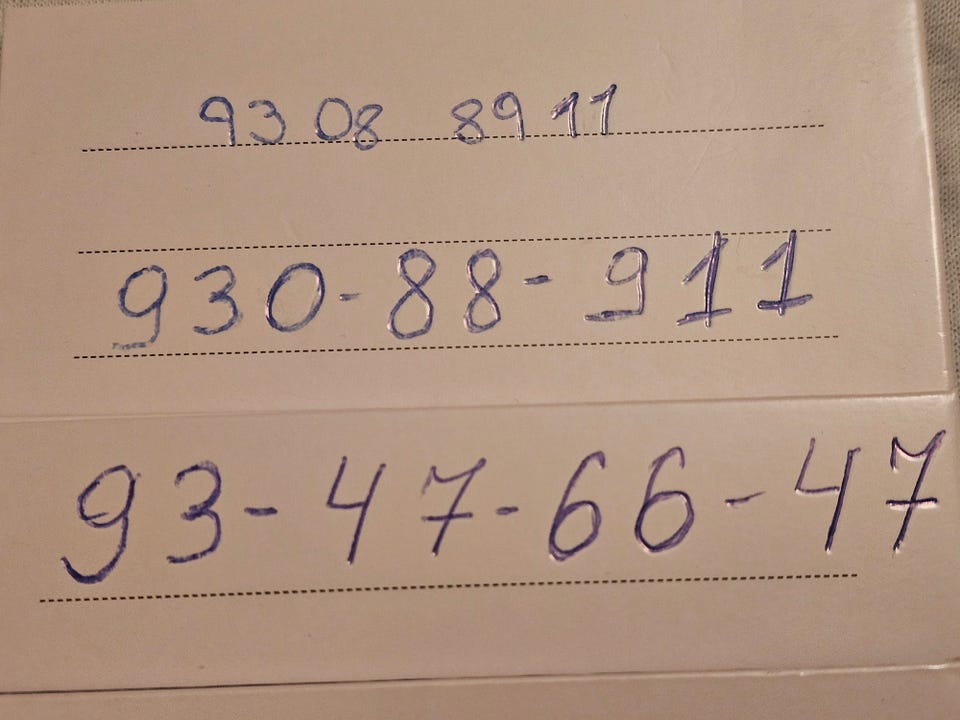 93 08 89 11
930-88-911
93-47-66-47